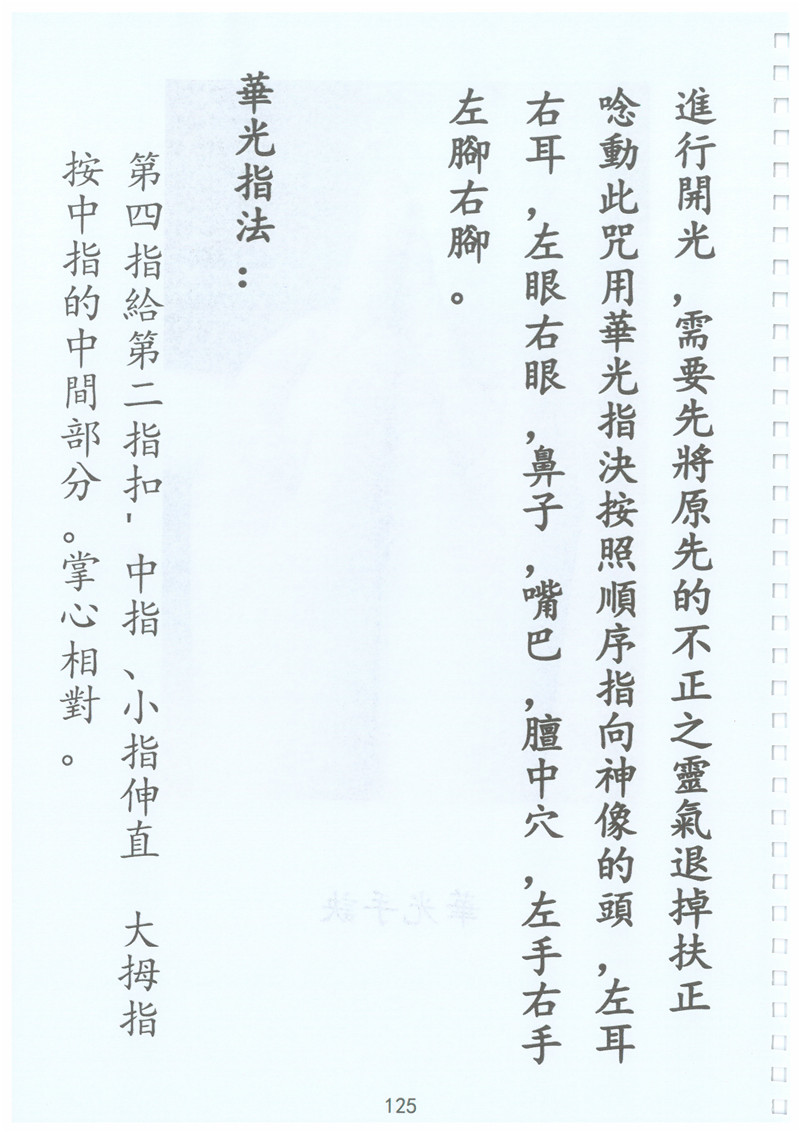 進行開光，需要先將原先的不正之靈氣退掉扶正
唸動此咒用華光指決按照順序指向神像的頭，左耳
右耳，左眼右眼，鼻子，嘴巴，膻中穴，左手右手
左腳右腳。
華光指法：
第四指給第二指扣'中指、小指伸直 大拇指
按中指的中間部分。掌心相對。
華光手訣
125